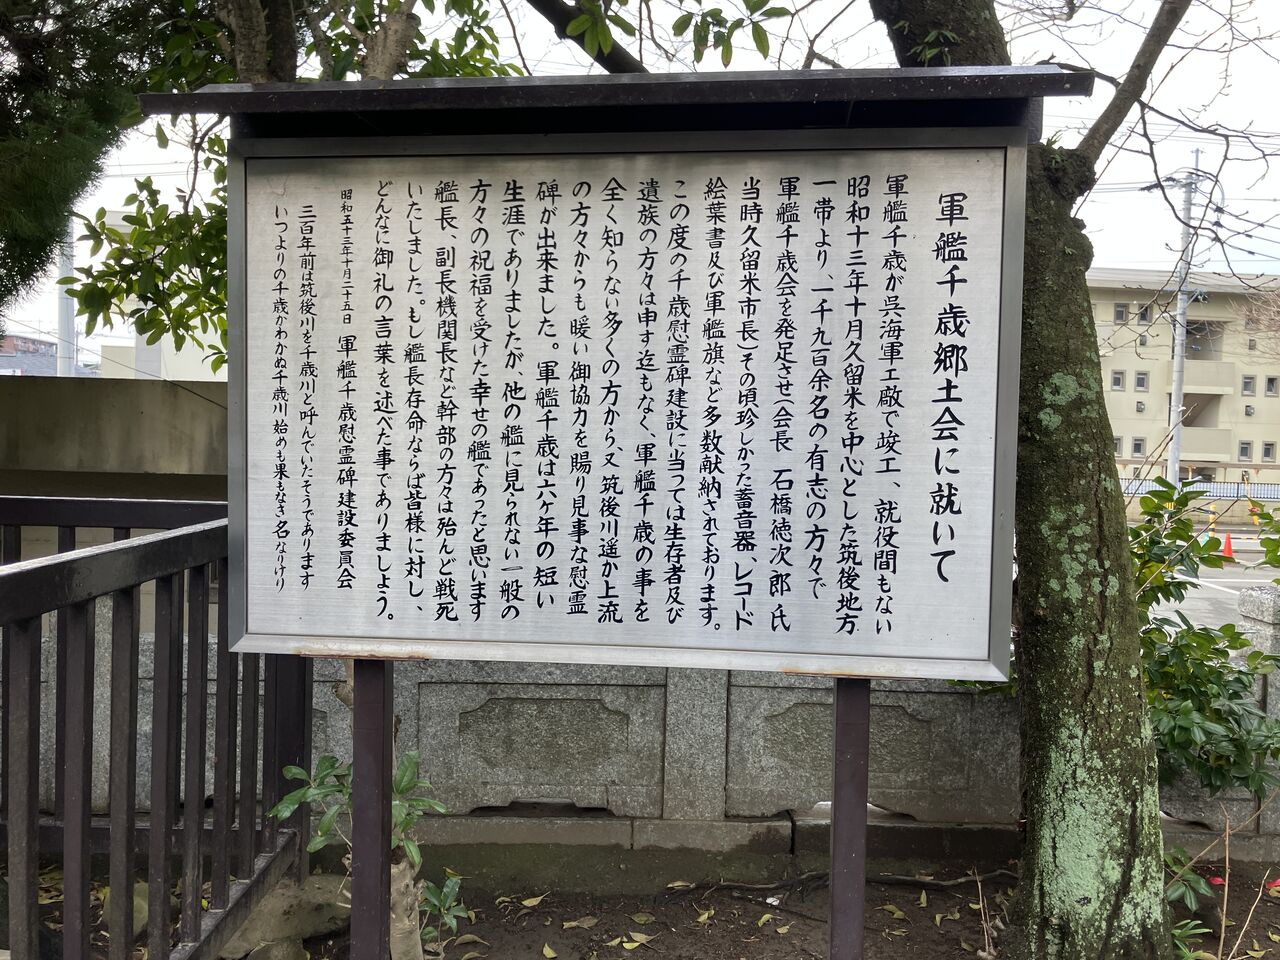 軍艦千歳郷土会に就いて
軍艦千歳が呉海軍工廠で竣工、就役間もない
昭和十三年十月久留米を中心とした筑後地方
一帯より、一千九百余名の有志の方々で
軍艦千歳会を発足させ(会長 石橋徳次郎氏
当時久留米市長)その頃珍しかった蓄音器、レコード
絵葉書及び軍艦旗など多数献納されております。
この度の千歳慰霊碑建設に当っては生存者及び
遺族の方々は申す迄もなく、軍艦千歳の事を
全く知らない多くの方から、又筑後川遥か上流
の方々からも暖い御協力を賜り見事な慰霊
碑が出来ました。軍艦千歳は六ヶ年の短い
生涯でありましたが、他の艦に見られない一般の
方々の祝福を受けた幸せの艦であったと思います
艦長、副長機関長など幹部の方々は殆んど戦死
いたしました。もし艦長存命ならば皆様に対し、
どんなに御礼の言葉を述べた事でありましょう。
昭和五十三年十月二十五日 軍艦千歳慰霊碑建設委員会
三百年前は筑後川を千歳川と呼んでいたそうであります
いつよりの千歳かわかぬ千歳川始めも果もなき名なりけり